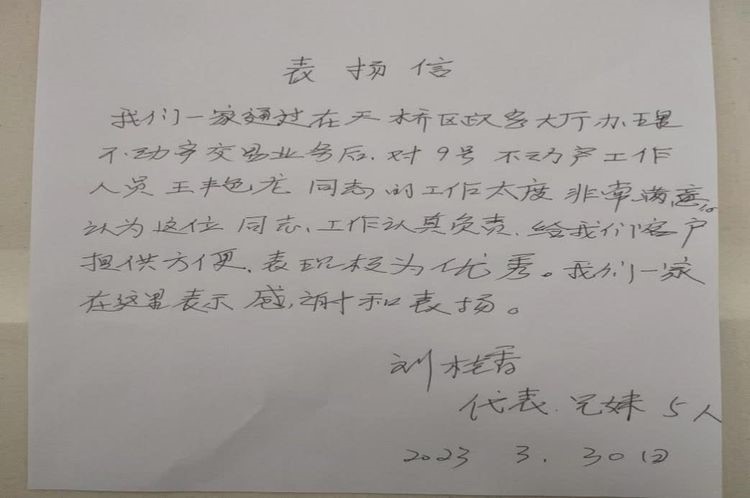 表扬信
我们一家通过在天桥区政务大厅办理
不动产交易业务后,对9号不动产工作
人员王艳龙同志的工作太度非常满意,
认为这位同志,工作认真负责,给我们客户
提供方便,表现极为优秀。我们一家
在这里表示感谢和表扬。
刘桂香
代表.兄妹5人
2023.3.30日